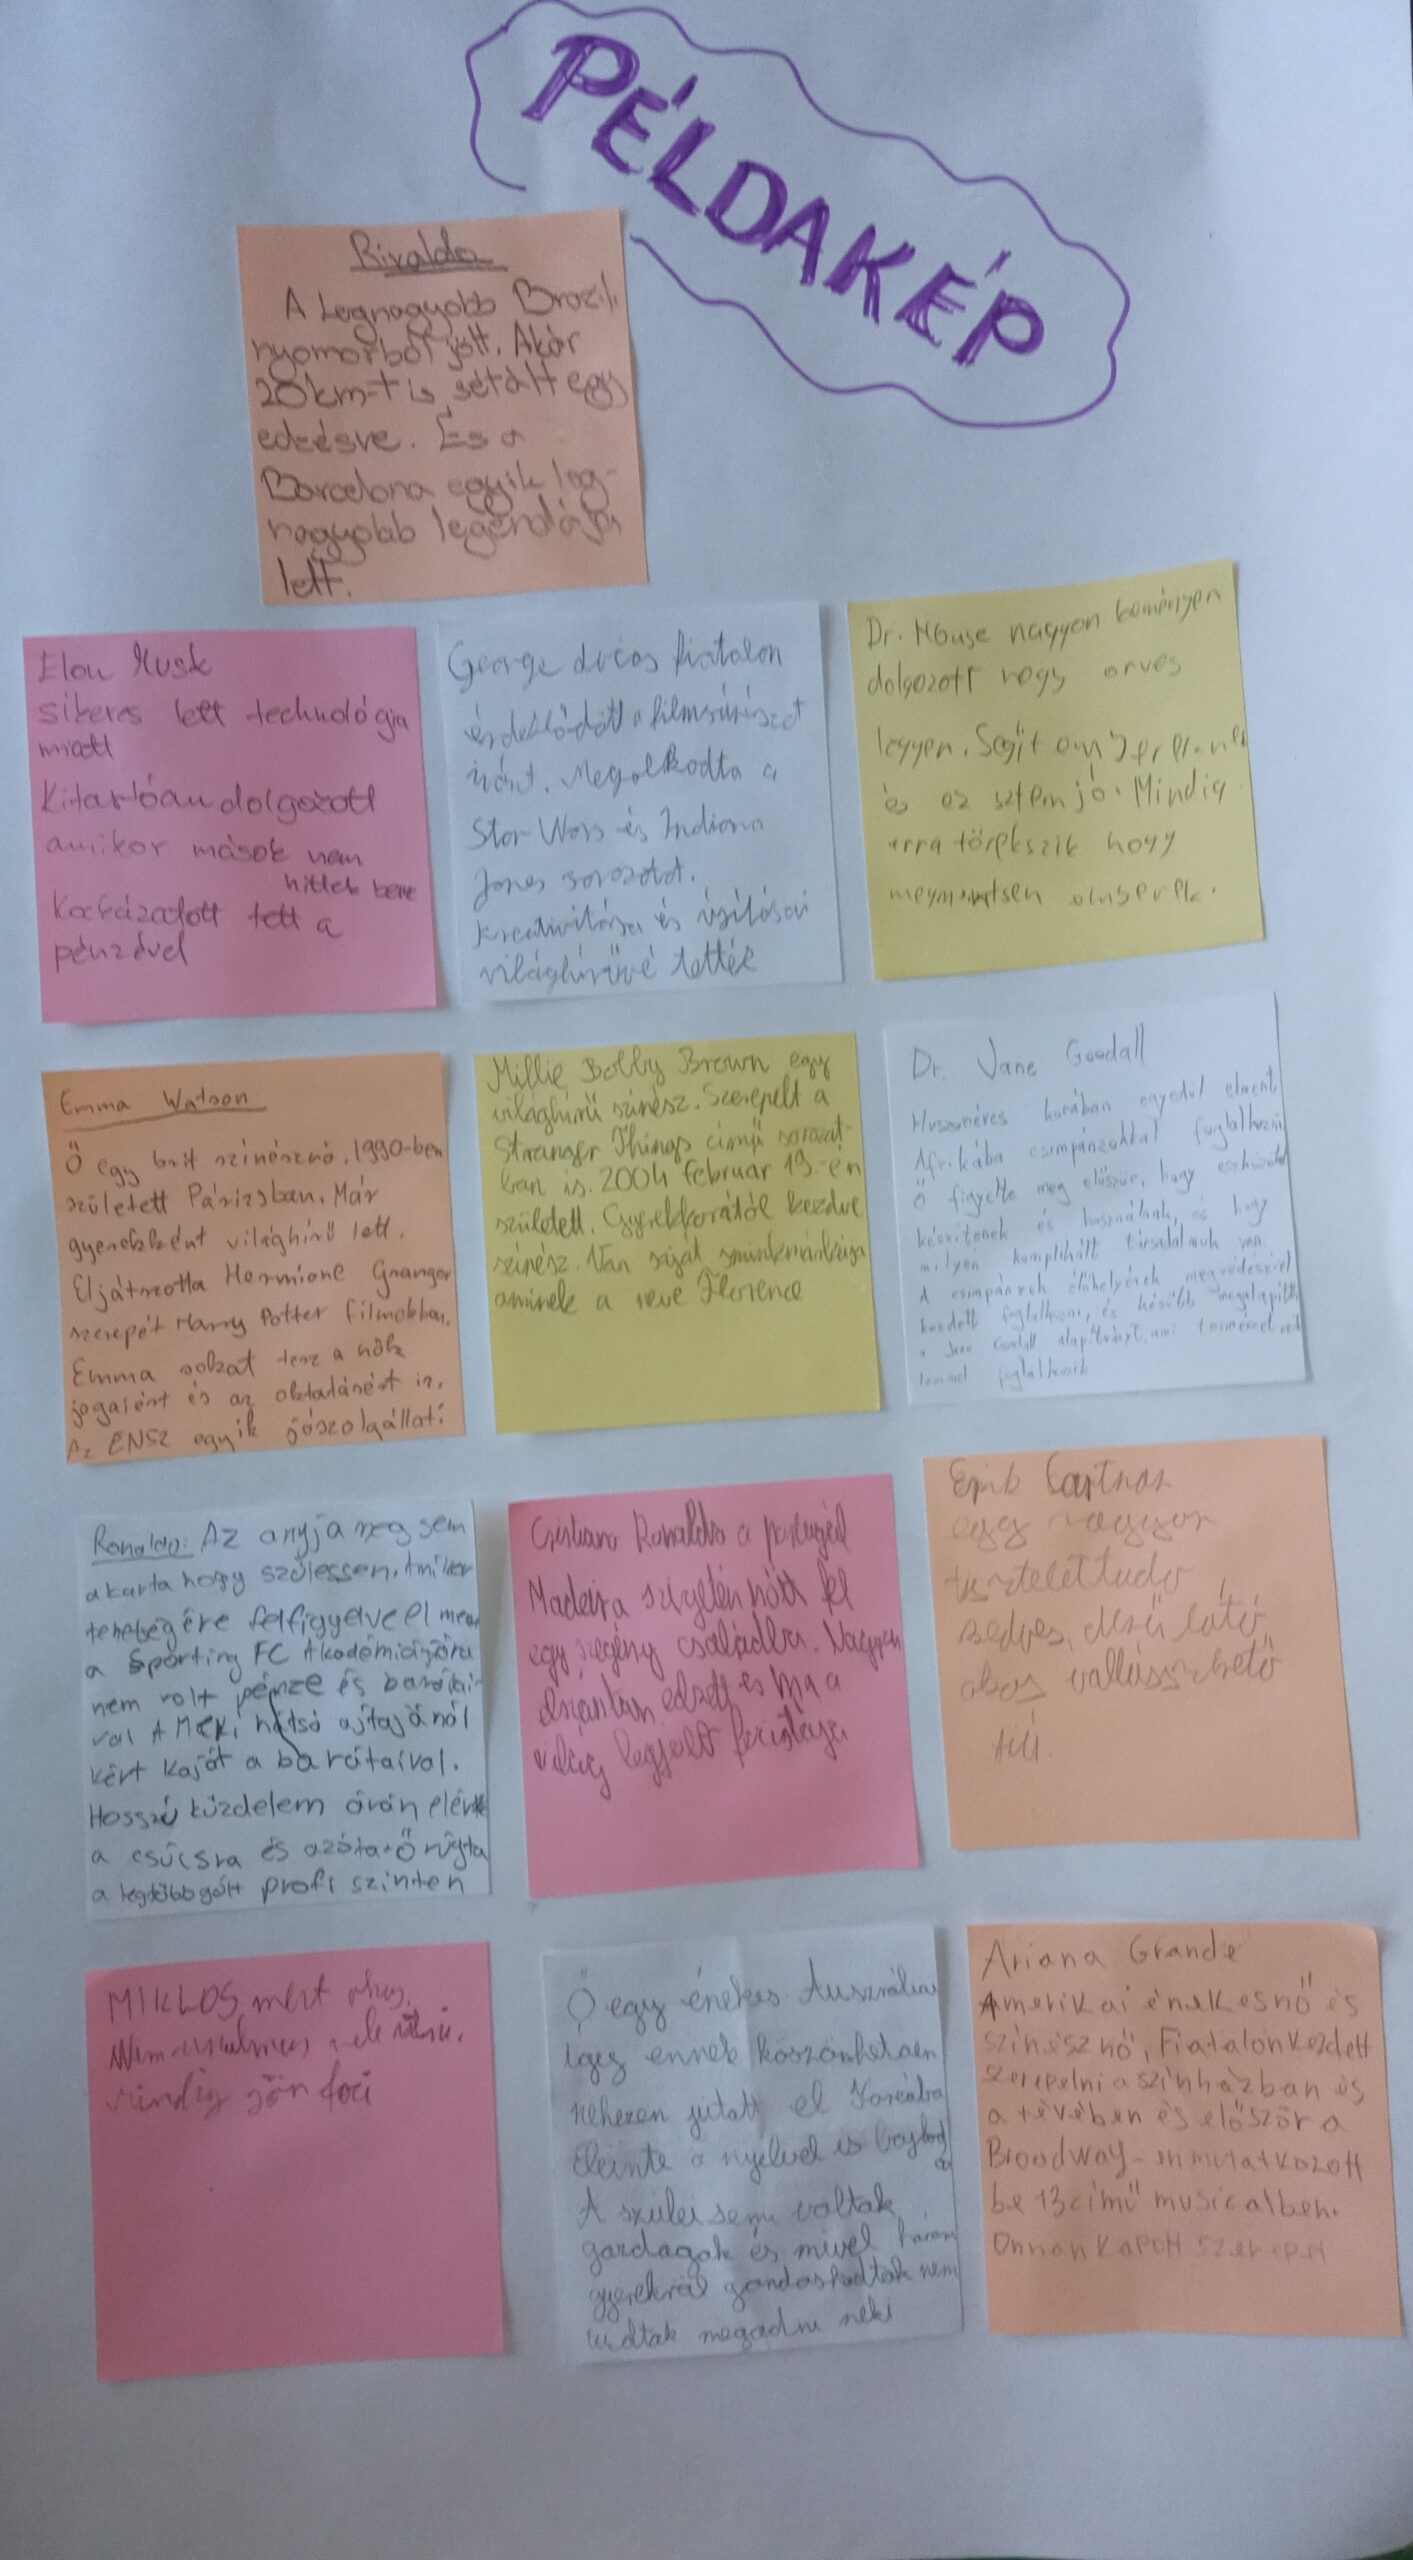 PÉLDAKÉP
Rivaldo
A Legnagyobb Brazil
nyomorból jött. Akár
20km-t is sétált egy
edzésre. És a
Barcelona egyik leg-
nagyobb legendája
lett.
Elon Musk
sikeres lett technológia
miatt
Kitartóan dolgozott
amikor mások nem
hittek benne
Kockázatott tett a
pénzével
George Lucas fiatalon
érdeklődött a filmművészet
iránt. Megalkodta a
Star Wars és Indiana
Jones sorozatot.
kreativitása és újításai
világhírűvé tették
Dr. House nagyon keményen
dolgozott hogy orvos
legyen. Segít
és ez jó. Mindig
arra törekszik hogy
megmentsen
Emma Watson
Ő egy brit színésznő. 1990-ben
született Párizsban. Már
gyerekként világhírű lett.
Eljátszotta Hermione Granger
szerepét Harry Potter filmekben.
Emma sokat tesz a nők
jogaiért és az oktatásért is.
Az ENSZ egyik jószolgálati
Millie Bobby Brown egy
világhírű színész. Szerepelt a
Stranger Things című sorozat-
ban is. 2004 február 19-én
született. Gyerekkorától kezdve
színész. Van saját sminkmárkája
aminek a neve Florence
Dr. Jane Goodall
Huszonéves korában egyedül elment
Afrikába csimpánzokkal foglalkozni
Ő figyelte meg először, hogy eszközöket
készítenek és használnak, és hogy
milyen komplikált társadalmuk van.
A csimpánzok élőhelyének megvédésével
kezdett foglalkozni, és később megalapította
a Jane Goodall alapítványt, ami
foglalkozik
Ronaldo: Az anyja meg sem
akarta hogy szülessen. Amikor
tehetségére felfigyelve el ment
a Sporting FC Akadémiájára
nem volt pénze és barátai-
val A Meki hátsó ajtajánál
kért kaját a barátaival.
Hosszú küzdelem árán elért
a csúcsra és azóta Ő rúgta
a legtöbb gólt profi szinten
Cristiano Ronaldo a portugál
Madeira szigetén nőtt fel
egy szegény családba. Nagyon
edzett és ma a
világ legjobb focistája
Erik Cartman
egy nagyon
tisztelettudó
kedves,
okos
MIKLOS mert okos.
mindig jön foci
Ő egy énekes. Ausztráliai
igez ennek köszönhetően
nehezen jutott el Koreába
Eleinte a nyelvel is
A szülei sem voltak
gazdagok és mivel három
gyerekről gondoskodtak nem
tudtak megadni neki
Ariana Grande
Amerikai énekesnő és
színésznő, Fiatalon kezdett
szerepelni a színházban és
a tévében és először a
Broodway-n mutatkozott
be 13 című musicalben.
Onnan kapott szerepet